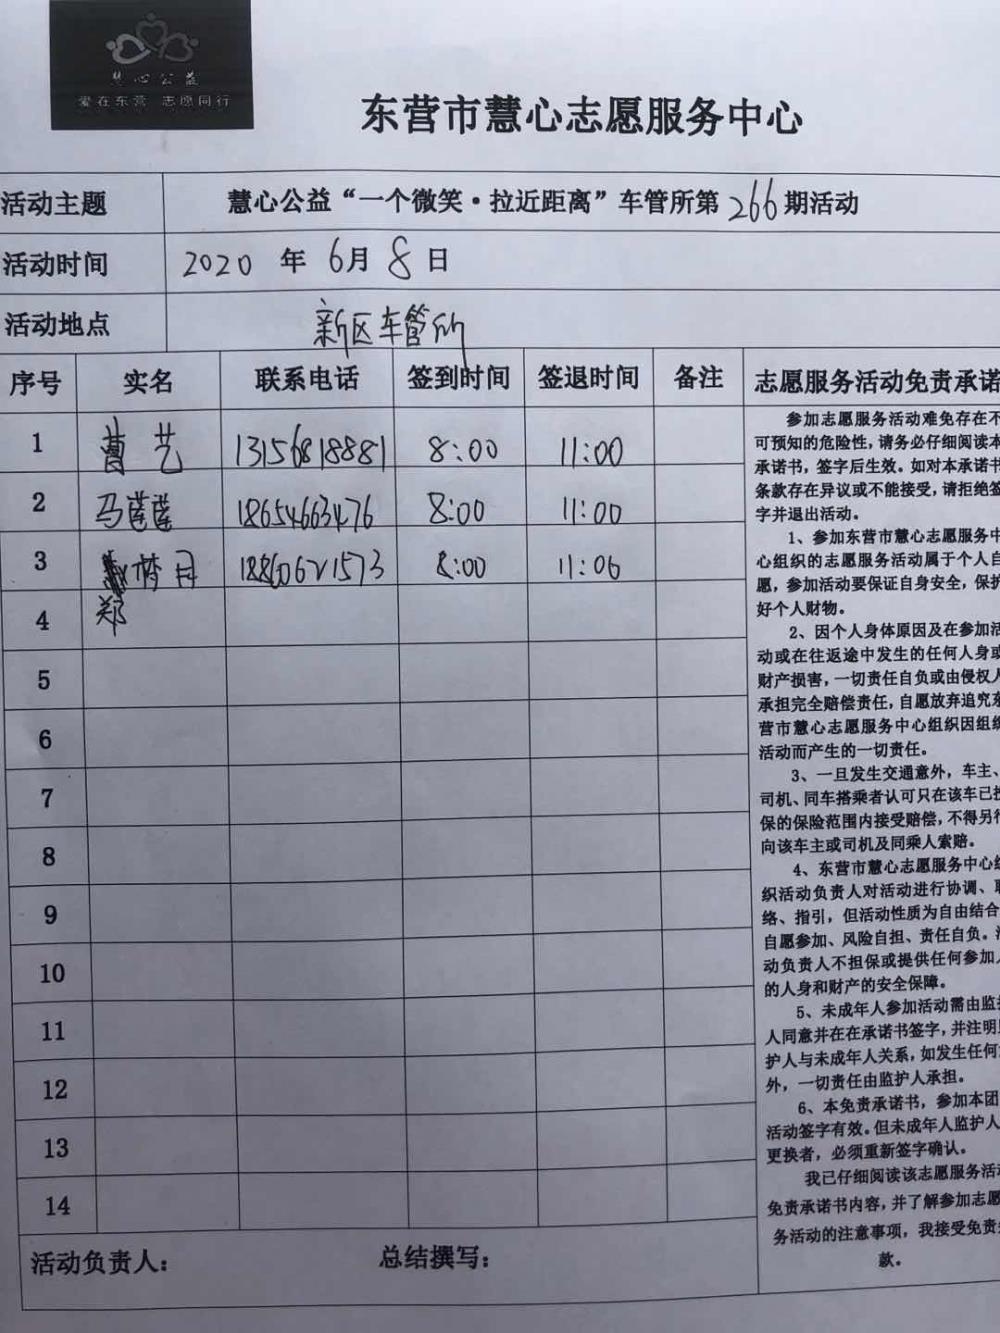 慧心公益
爱在东营 志愿同行
东营市慧心志愿服务中心
活动主题 慧心公益“一个微笑·拉近距离”车管所第266期活动
活动时间 2020 年 6月 8 日
活动地点 新区车管所
序号 实名 联系电话 签到时间 签退时间 备注
1 曹艺 13156818881 8:00 11:00
2 马莲莲 18654663476 8:00 11:00
3 梦月 18860621573 8:00 11:00
郑
4
5
6
7
8
9
10
11
12
13
14
活动负责人： 总结撰写：
志愿服务活动免责承诺
参加志愿服务活动难免存在不
可预知的危险性，请务必仔细阅读本
承诺书，签字后生效。如对本承诺书
条款存在异议或不能接受，请拒绝签
字并退出活动。
1、参加东营市慧心志愿服务中
心组织的志愿服务活动属于个人自
愿，参加活动要保证自身安全，保护
好个人财物。
2、因个人身体原因及在参加活
动或在往返途中发生的任何人身或
财产损害，一切责任自负或由侵权人
承担完全赔偿责任，自愿放弃追究东
营市慧心志愿服务中心组织因组织
活动而产生的一切责任。
3、一旦发生交通意外，车主、
司机、同车搭乘者认可只在该车已投
保的保险范围内接受赔偿，不得另行
向该车主或司机及同乘人索赔。
4、东营市慧心志愿服务中心组
织活动负责人对活动进行协调、联
络、指引，但活动性质为自由结合
自愿参加、风险自担、责任自负。活
动负责人不担保或提供任何参加人
的人身和财产的安全保障。
5、未成年人参加活动需由监护
人同意并在在承诺书签字，并注明监
护人与未成年人关系，如发生任何意
外，一切责任由监护人承担。
6、本免责承诺书，参加本团
活动签字有效。但未成年人监护人
更换者，必须重新签字确认。
我已仔细阅读该志愿服务活动
免责承诺书内容，并了解参加志愿
务活动的注意事项，我接受免责
款。